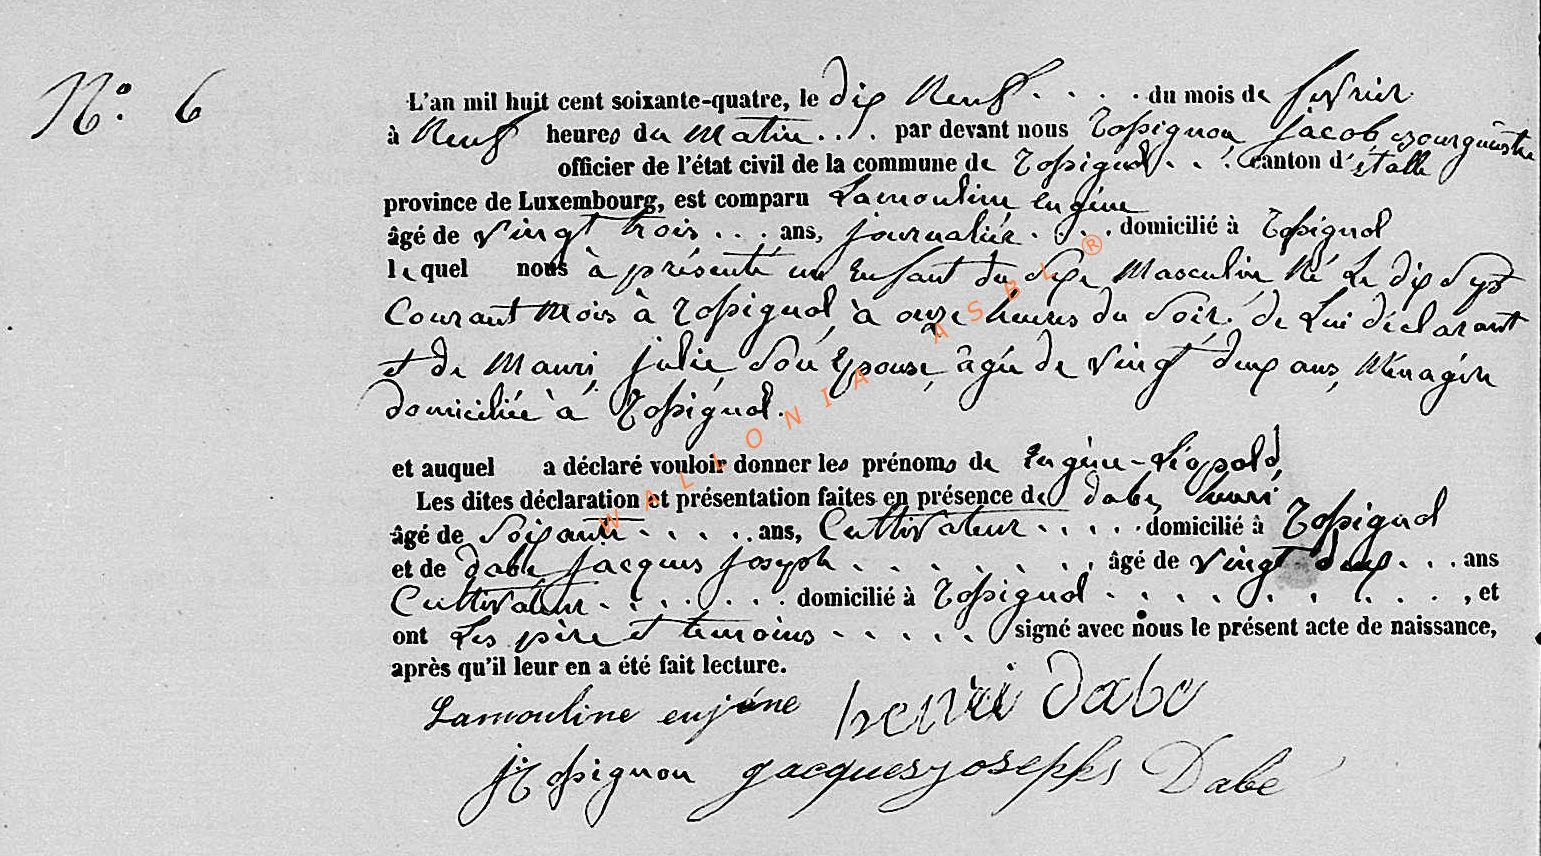 N° 6
L'an mil huit cent soixante-quatre, le dix Neuf . . . . du mois de fevrier
à Neuf heures du Matin . . . . par devant nous Rossignon jacob, bourguestre
officier de l'état civil de la commune de Rossignol . . . canton d'étalle
province de Luxembourg, est comparu Lamouline eugène
âgé de vingt trois . . . ans, journalier . . . . domicilié à Rossignol
lequel nous à présenté un Enfant du Sexe Masculin Né Le dix Sept
Courant Mois à Rossignol, à onze heures du Soir, de Lui déclarant
et de Mauri, julie, Son Epouse, âgée de vingt deux ans, Ménagère
domiciliée à Rossignol.
et auquel a déclaré vouloir donner les prénoms de Eugène-Léopold,
Les dites déclaration et présentation faites en présence de dabe, henri
âgé de Soixante . . . . . ans, Cultivateur . . . . . domicilié à Rossignol
et de dabe jacques joseph . . . . . . . . âgé de vingt deux . . . ans
Cultivateur . . . . . . . domicilié à Rossignol . . . . . . . . . . , et
ont Les père et temoins . . . . . signé avec nous le présent acte de naissance,
après qu'il leur en a été fait lecture.
Lamouline eujéne henri dabe
j Rossignon jacques josephs Dabe
WALLONIA ASBL ®